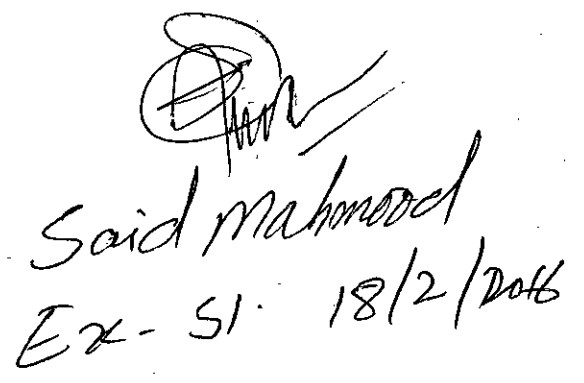 Said Mahmood
Ex- SI. 18/2/2016